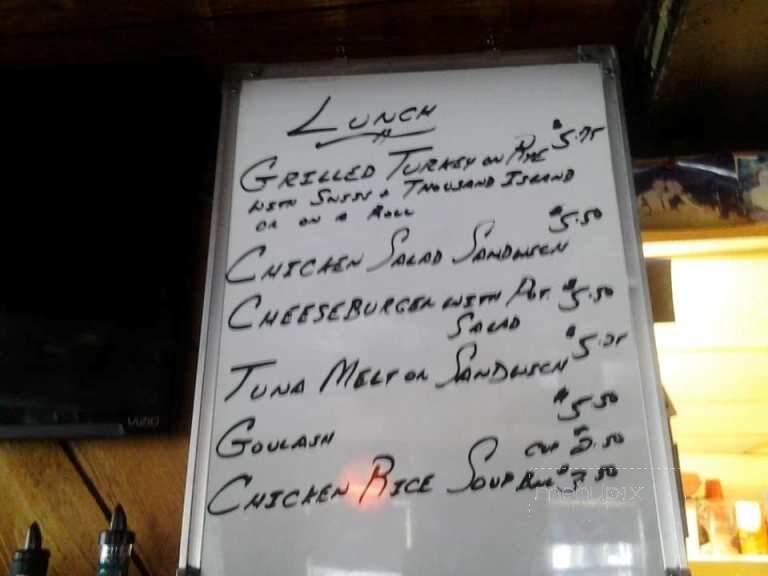 LUNCH
GRILLED TURKEY ON RYE $5.75
WITH SWISS & THOUSAND ISLAND
OR ON A ROLL
CHICKEN SALAD SANDWICH $5.50
CHEESEBURGER WITH POT. $5.50
SALAD
TUNA MELT OR SANDWICH $5.25
GOULASH $5.50
CUP $2.50
CHICKEN RICE SOUP BOWL $3.50
menupix
VIZIO